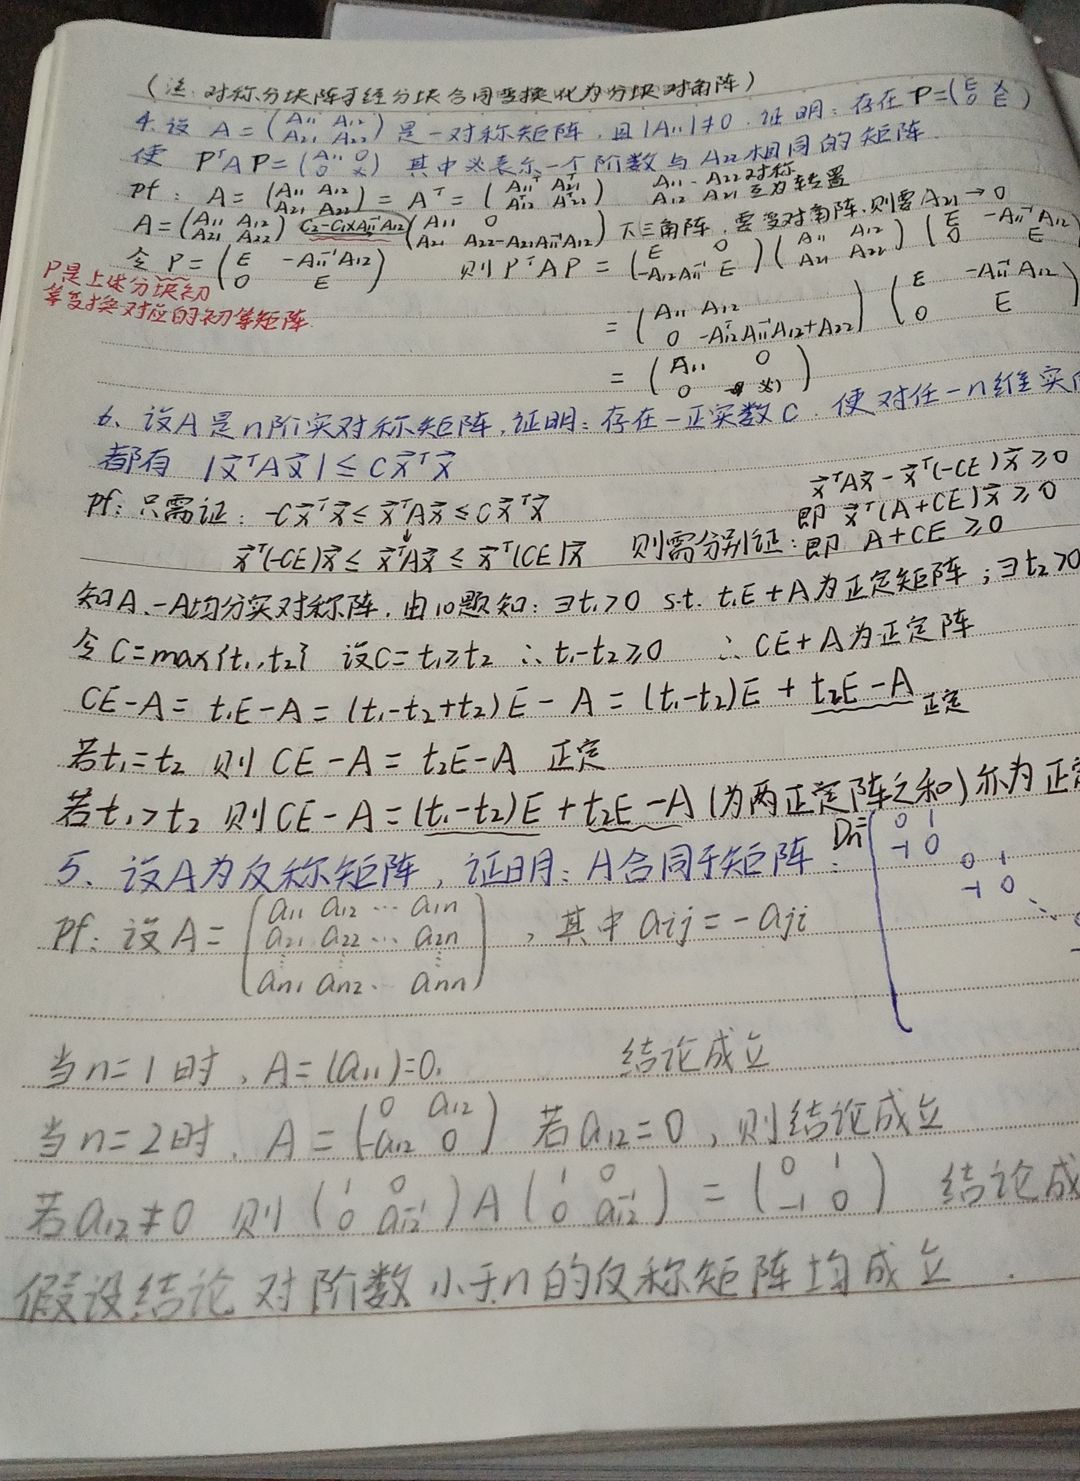 (注:对称分块阵可经分块合同变换化为分块对角阵)
4.设 A=(A₁₁ A₁₂ / A₂₁ A₂₂) 是一对称矩阵,且|A₁₁|≠0,证明:存在P=(E / 0 E)
使 PᵀAP=(A₁₁ 0 / 0 *) 其中*表示一个阶数与A₂₂相同的矩阵.
pf: A=(A₁₁ A₁₂ / A₂₁ A₂₂)=Aᵀ=(A₁₁ᵀ A₂₁ᵀ / A₁₂ᵀ A₂₂ᵀ) A₁₁、A₂₂对称 A₁₂ A₂₁互为转置
A=(A₁₁ A₁₂ / A₂₁ A₂₂) C₂-C₁×A₁₁⁻¹A₁₂ (A₁₁ 0 / A₂₁ A₂₂-A₂₁A₁₁⁻¹A₁₂) 下三角阵,要变对角阵,则要A₂₁→0
令 P=(E -A₁₁⁻¹A₁₂ / 0 E) 则PᵀAP=(E 0 / -A₁₂ᵀA₁₁⁻¹ E)(A₁₁ A₁₂ / A₂₁ A₂₂)(E -A₁₁⁻¹A₁₂ / 0 E)
P是上述分块初
等变换对应的初等矩阵.
=(A₁₁ A₁₂ / 0 -A₁₂ᵀA₁₁⁻¹A₁₂+A₂₂)(E -A₁₁⁻¹A₁₂ / 0 E)
=(A₁₁ 0 / 0 *)
6、设A是n阶实对称矩阵,证明:存在一正实数C,使对任一n维实
都有 |x⃗ᵀAx⃗|≤Cx⃗ᵀx⃗
pf:只需证:-Cx⃗ᵀx⃗≤x⃗ᵀAx⃗≤Cx⃗ᵀx⃗
x⃗ᵀ(-CE)x⃗≤x⃗ᵀAx⃗≤x⃗ᵀ(CE)x⃗ 则需分别证:
x⃗ᵀAx⃗-x⃗ᵀ(-CE)x⃗≥0
即 x⃗ᵀ(A+CE)x⃗≥0
即 A+CE≥0
知A、-A均为实对称阵,由10题知:∃t₁>0 s.t. t₁E+A为正定矩阵;∃t₂>0
令C=max{t₁,t₂} 设C=t₁≥t₂ ∴t₁-t₂≥0 ∴CE+A为正定阵
CE-A=t₁E-A=(t₁-t₂+t₂)E-A=(t₁-t₂)E+t₂E-A 正定
若t₁=t₂ 则CE-A=t₂E-A 正定
若t₁>t₂ 则CE-A=(t₁-t₂)E+t₂E-A(为两正定阵之和)亦为正定
5、设A为反称矩阵,证明:A合同于矩阵: Dn=(0 1 / -1 0 / 0 1 / -1 0 ⋱
pf:设A=(a₁₁ a₁₂ ⋯ a₁ₙ / a₂₁ a₂₂ ⋯ a₂ₙ / ⋮ ⋮ ⋮ / aₙ₁ aₙ₂ ⋯ aₙₙ),其中aij=-aji
当n=1时,A=(a₁₁)=0. 结论成立
当n=2时,A=(0 a₁₂ / -a₁₂ 0) 若a₁₂=0,则结论成立
若a₁₂≠0 则(1 0 / 0 a₁₂⁻¹)A(1 0 / 0 a₁₂⁻¹)=(0 1 / -1 0) 结论成
假设结论对阶数小于n的反称矩阵均成立.